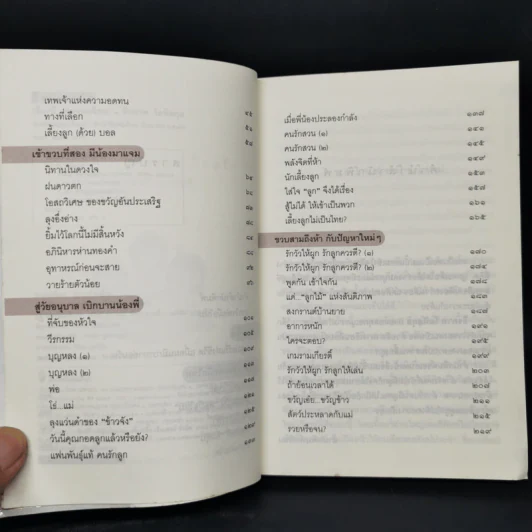 เทพเจ้าแห่งความอดทน
ทางที่เลือก
เลี้ยงลูก (ด้วย) บอล
เข้าขวบที่สอง มีน้องมาแจม
นิทานในดวงใจ
ฝนดาวตก
โอสถวิเศษ ของขวัญอันประเสริฐ
ลุงอึ่งอ่าง
ยิ้มไว้โลกนี้ไม่มีสิ้นหวัง
อภินิหารห่านทองคำ
อุทาหรณ์ก่อนจะสาย
วายร้ายตัวน้อย
สู่วัยอนุบาล เบิกบานน้องพี่
ที่จับของหัวใจ
วีรกรรม
บุญหลง (๑)
บุญหลง (๒)
พ่อ
โธ่...แม่
ลุงแว่นดำของ "ข้าวจัง"
วันนี้คุณกอดลูกแล้วหรือยัง?
แฟนพันธุ์แท้ คนรักลูก
เมื่อพี่น้องประลองกำลัง ๑๓๘
คนรักสวน (๑) ๑๔๑
คนรักสวน (๒) ๑๔๕
พลังจิตพี่ห้า ๑๔๙
นักเลี้ยงลูก ๑๕๓
ใส่ใจ "ลูก" จึงได้เรื่อง ๑๕๗
สู้ไม่ได้ ให้เข้าเป็นพวก ๑๖๑
เลี้ยงลูกไม่เป็นไทย? ๑๖๕
ขวบสามถึงห้า กับปัญหาใหม่ๆ
รักวัวให้ผูก รักลูกควรตี? (๑) ๑๗๐
รักวัวให้ผูก รักลูกควรตี? (๒) ๑๗๔
พูดกัน เข้าใจกัน ๑๗๘
แค่..."ลูกไม้" แห่งสันติภาพ ๑๘๓
สงกรานต์บ้านยาย ๑๘๗
อาการหนัก ๑๙๑
ใครจะตอบ? ๑๙๕
เกมรามเกียรติ์ ๑๙๙
รักวัวให้ผูก รักลูกให้เล่น ๒๐๓
ถ้าย้อนเวลาได้ ๒๐๗
ขวัญเอ๋ย...ขวัญข้าว ๒๑๑
สัตว์ประหลาดกับแม่ ๒๑๕
รวยหรือจน? ๒๑๙